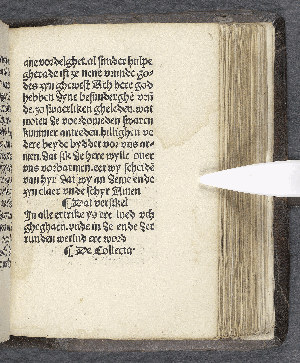 ane vordelghet. al sunder hulpe
ghenade ist ze nene vrunde go
des zyn ghewest Och here god
hebben dyne besunderghe vrū
de. so swaerliken gheleden. wat
moten de vordomeden swaren
kummer an treden. hillighen ve
dere beyde byddet vor vns ar
men. dat sik de here wylle ouer
vns vorbarmen. eer wy scheide
van hyr. dat wy an deme ende
zyn claer vnde schyr Amen
¶ Dat versikel
In alle ertrike ys ere lued vth
gheghaen. vnde in de ende der
runden werld ere word
¶ De Collecta